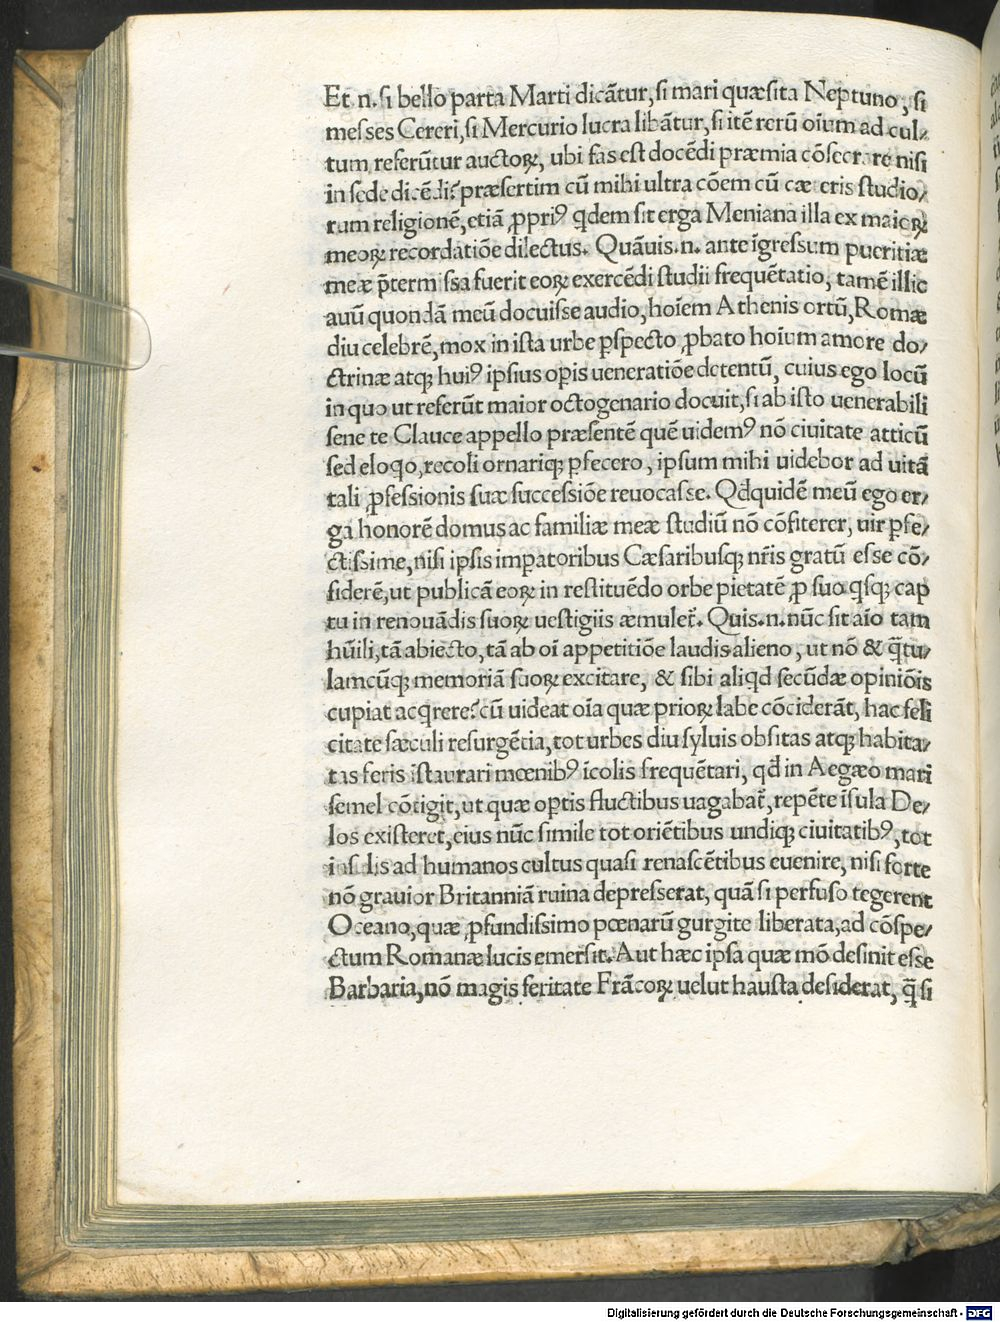 Et .n. si bello parta Marti dicãtur, si mari quæsita Neptuno, si
messes Cereri, si Mercurio lucra libãtur, si itẽ rerũ oĩum ad cul/
tum referũtur auctoꝝ, ubi fas est docẽdi præmia cõsecrare nisi
in sede dicẽdi? præsertim cũ mihi ultra cõem cũ cæteris studio/
rum religionẽ, etiã ꝓpriꝰ qdem sit erga Meniana illa ex maioꝝ
meoꝝ recordatiõe dilectus. Quãuis .n. ante ĩgressum pueritiæ
meæ p̃termissa fuerit eoꝝ exercẽdi studii frequẽtatio, tamẽ illic
auũ quondã meũ docuisse audio, hoĩem Athenis ortũ, Romæ
diu celebrẽ, mox in ista urbe ꝑspecto ꝓbato hoĩum amore do/
ctrinæ atqꝫ huiꝰ ipsius oꝑis ueneratiõe detentũ, cuius ego locũ
in quo ut referũt maior octogenario docuit, si ab isto uenerabili
sene te Glauce appello præsentẽ quẽ uidemꝰ nõ ciuitate atticũ
sed eloqo, recoli ornariqꝫ ꝑfecero, ipsum mihi uidebor ad uitã
tali ꝓfessionis suæ successiõe reuocasse. Qđquidẽ meũ ego er/
ga honorẽ domus ac familiæ meæ studiũ nõ cõfiterer, uir ꝑfe/
ctissime, nisi ipsis imꝑatoribus Cæsaribusqꝫ nr̃is gratũ esse cõ/
siderẽ, ut publicã eoꝝ in restituẽdo orbe pietatẽ ꝓ suo qsqꝫ cap
tu in renouãdis suoꝝ uestigiis æmulet̃. Quis .n. nũc sit aĩo tam
hũili, tã abiecto, tã ab oĩ appetitiõe laudis alieno, ut nõ & q̃tu/
lamcũqꝫ memoriã suoꝝ excitare, & sibi aliqd secũdæ opiniõis
cupiat acqrere? cũ uideat oĩa quæ prioꝝ labe cõciderãt, hac feli
citate sæculi resurgẽtia, tot urbes diu syluis obsitas atqꝫ habita/
tas feris ĩstaurari mœnibꝰ ĩcolis frequẽtari, qđ in Aegæo mari
semel cõtigit, ut quæ oꝑtis fluctibus uagabat̃, repẽte ĩsula De/
los existeret, eius nũc simile tot oriẽtibus undiqꝫ ciuitatibꝰ, tot
insulis ad humanos cultus quasi renascẽtibus euenire, nisi forte
nõ grauior Britanniã ruina depresserat, quã si perfuso tegerent
Oceano, quæ ꝓfundissimo pœnarũ gurgite liberata, ad cõspe/
ctum Romanæ lucis emersit. Aut hæc ipsa quæ mõ desinit esse
Barbaria, nõ magis feritate Frãcoꝝ uelut hausta desiderat, q̃ si
Digitalisierung gefördert durch die Deutsche Forschungsgemeinschaft - DFG